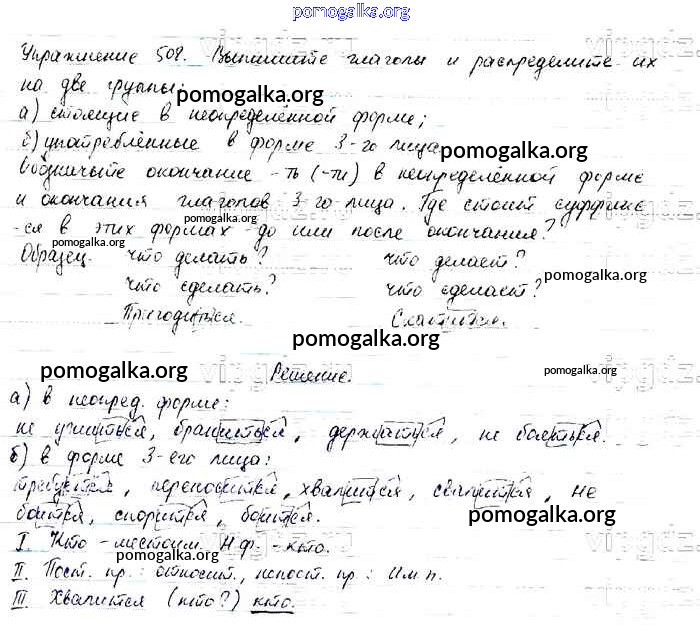 pomogalka.org
Упражнение 508. Выпишите глаголы и распределите их
на две группы:
pomogalka.org
а) стоящие в неопределённой форме;
б) употреблённые в форме 3-го лица.
pomogalka.org
Обозначьте окончание -ть (-ти) в неопределённой форме
и окончания глаголов 3-го лица. Где стоит суффикс
pomogalka.org
-ся в этих формах - до или после окончания?
pomogalka.org
Образец. что делать? что делает?
что сделать? что сделает?
pomogalka.org
Пригодиться. Скатится.
pomogalka.org
pomogalka.org Решение. pomogalka.org
а) в неопред. форме:
не учиться, браниться, держаться, не бояться.
б) в форме 3-его лица:
требуется, переносится, хвалится, свалится, не
боится, спорится, боится.
pomogalka.org
I Кто - местоим. Н.ф. - кто.
pomogalka.org
II. Пост. пр.: относит., непост. пр.: Им.п.
III Хвалится (кто?) кто.
pomogalka.org